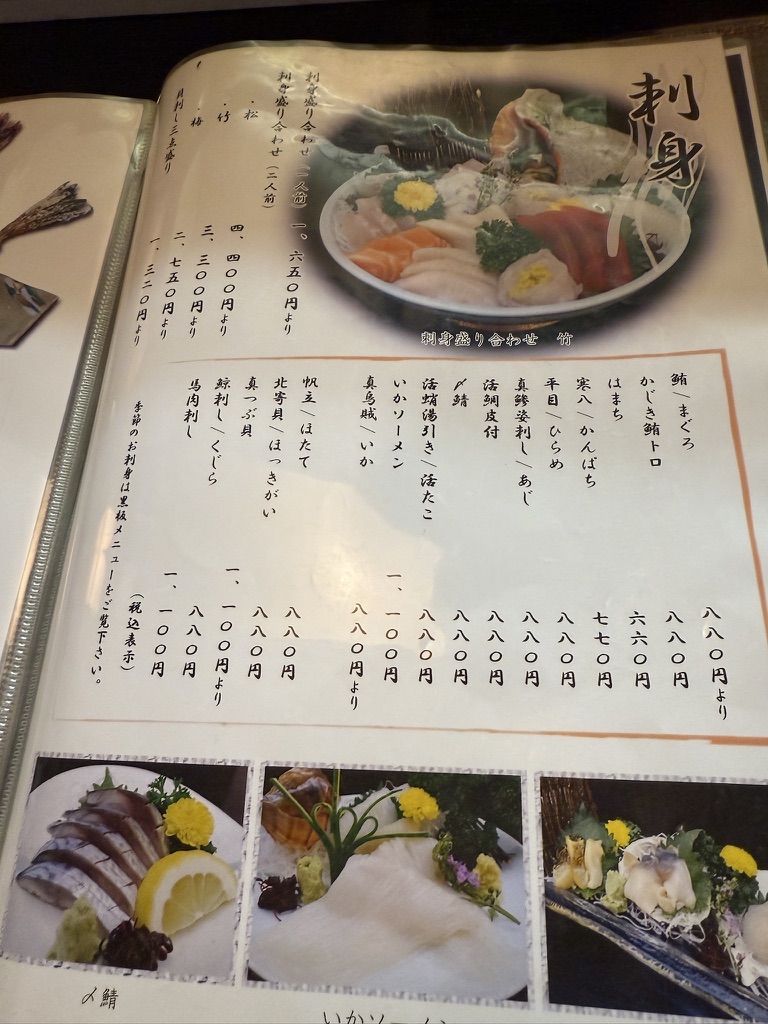 刺身
刺身盛り合わせ 竹
刺身盛り合わせ(一人前) 一、六五〇円より
刺身盛り合わせ(二人前)
・松 四、四〇〇円より
・竹 三、三〇〇円より
・梅 二、七五〇円より
貝刺し三点盛り 一、三二〇円より
鮪/まぐろ 八八〇円より
かじき鮪トロ 八八〇円
はまち 六六〇円
寒八/かんぱち 七七〇円
平目/ひらめ 八八〇円
真鯵姿刺し/あじ 八八〇円
活鯛皮付 八八〇円
〆鯖 八八〇円
活蛸湯引き/活たこ 八八〇円
いかソーメン 一、一〇〇円
真烏賊/いか 八八〇円より
帆立/ほたて 八八〇円
北寄貝/ほっきがい 八八〇円
真つぶ貝 一、一〇〇円より
鯨刺し/くじら 八八〇円
馬肉刺し 一、一〇〇円
(税込表示)
季節のお刺身は黒板メニューをご覧下さい。
〆鯖
いかソーメン